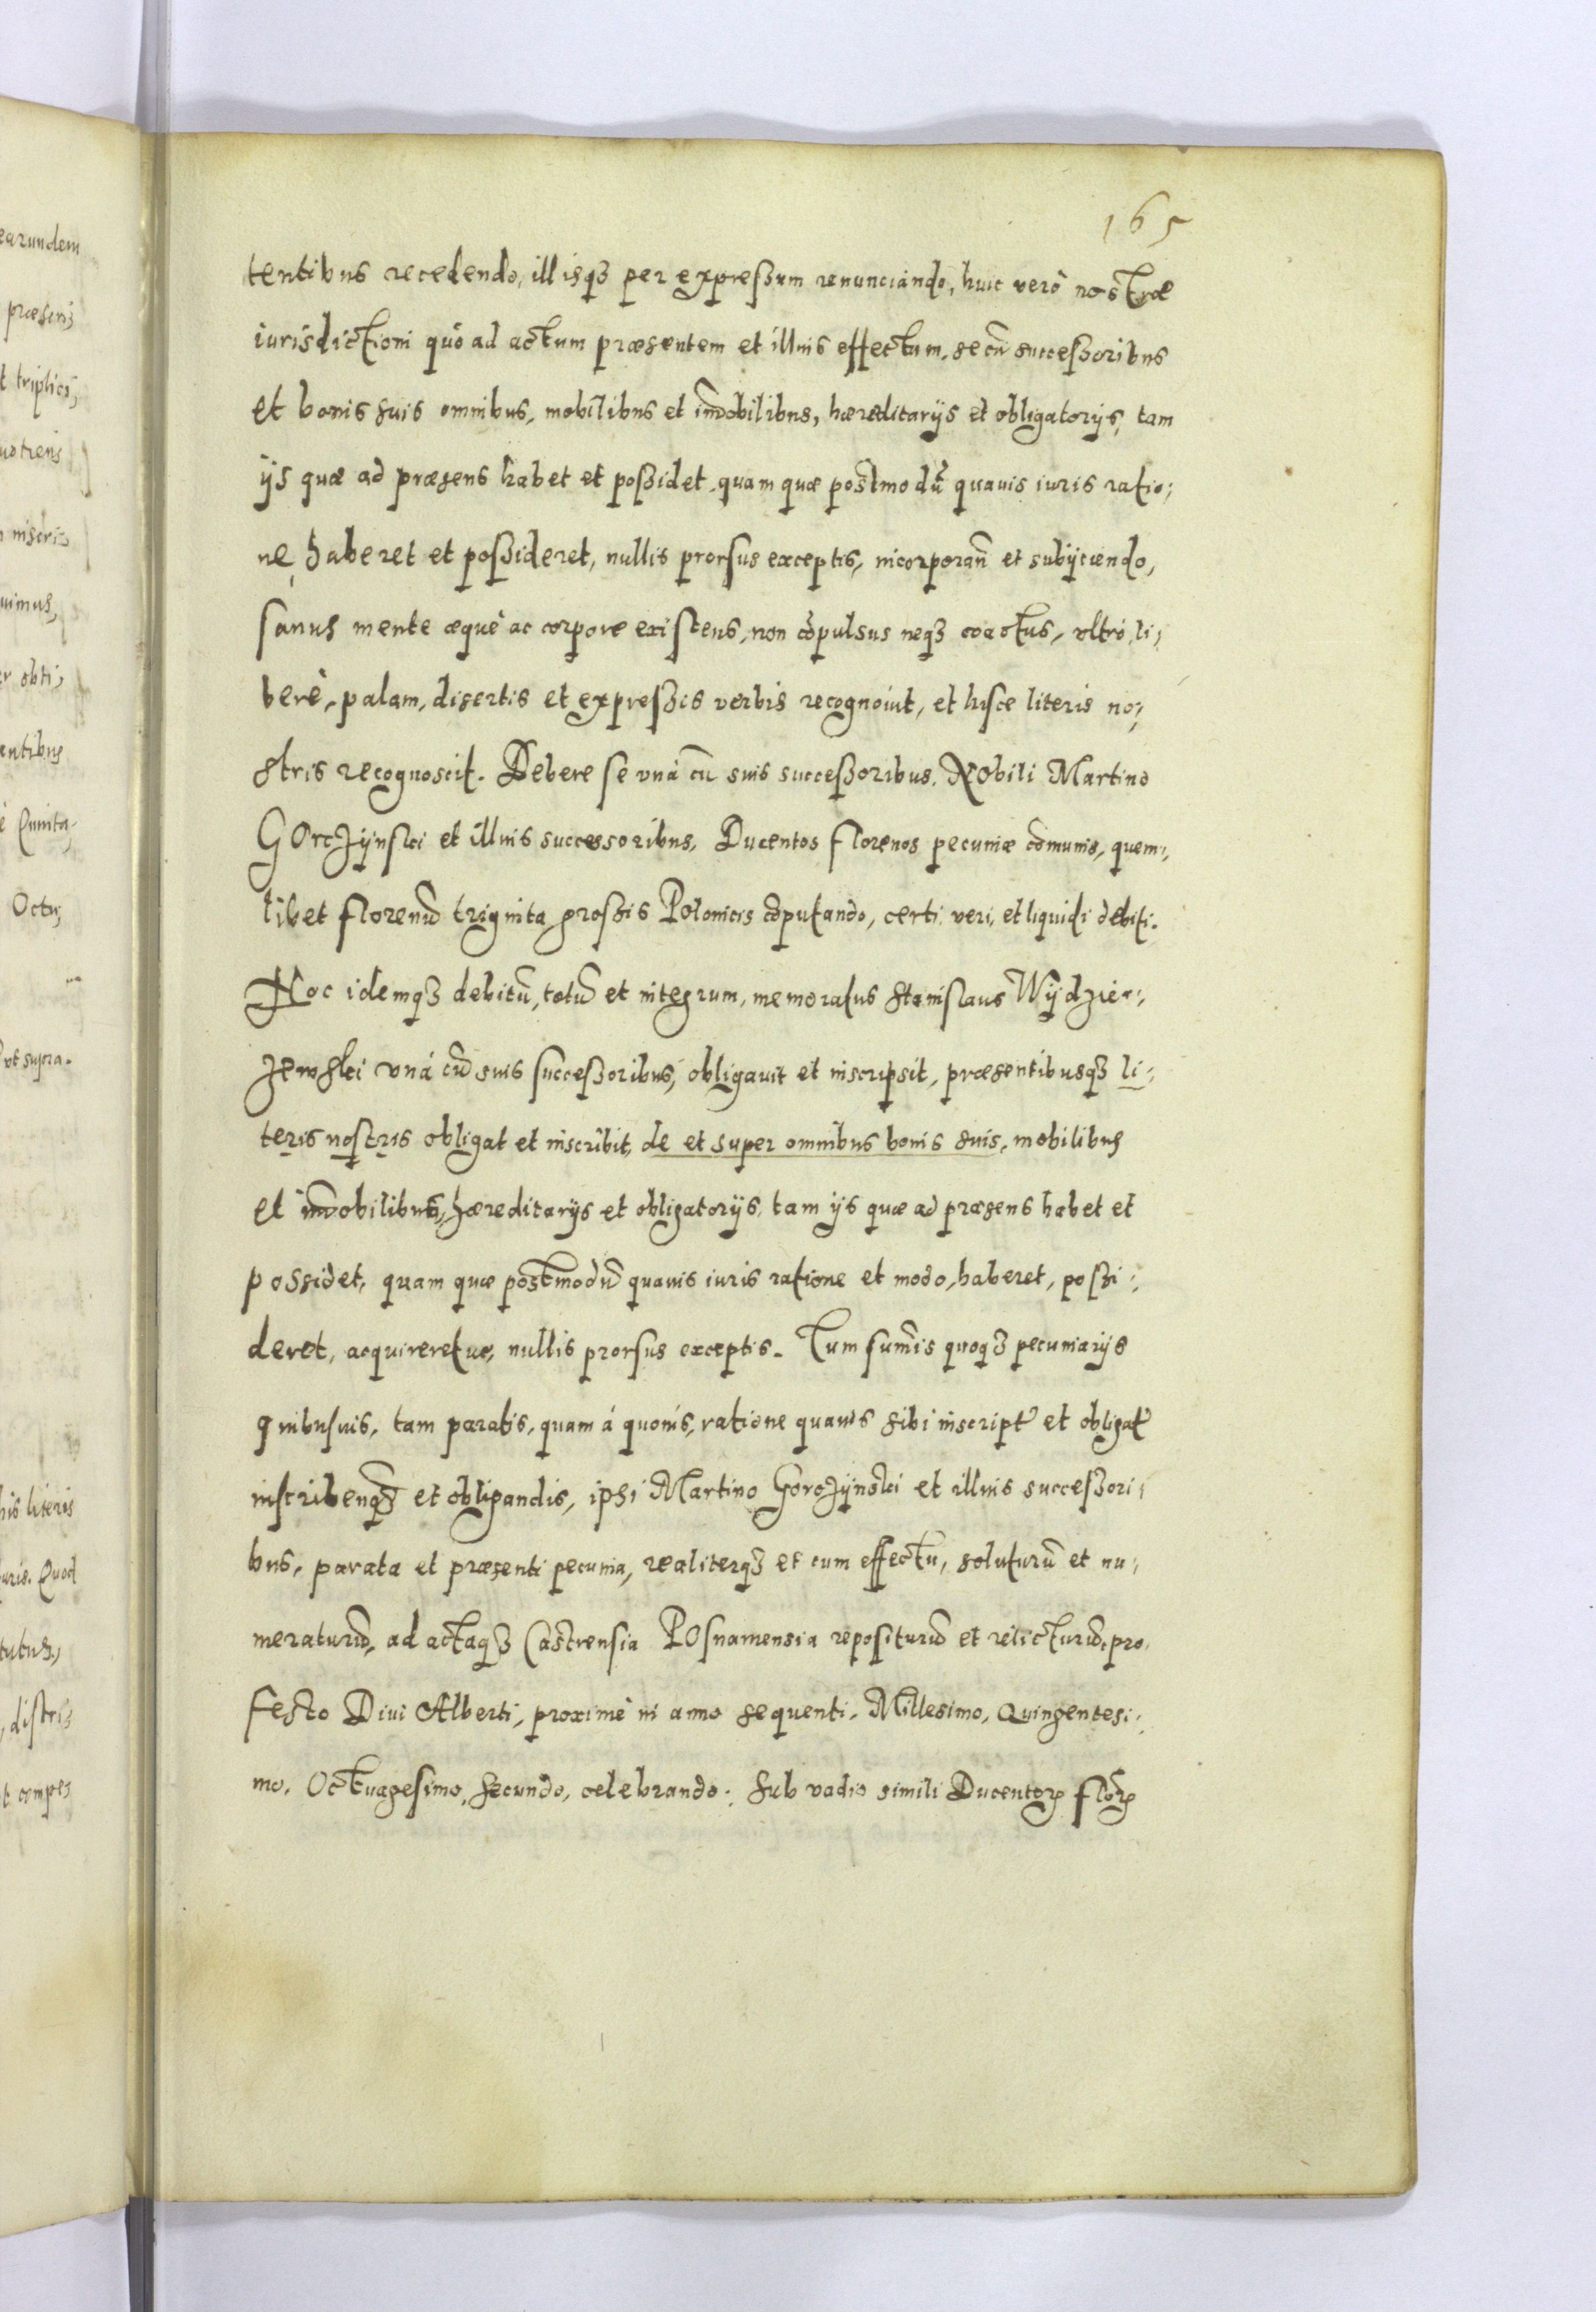 165
tentibus recedendo, illisqꝫ per expreßum renunciando, huic verò nostræ
iurisdictioni quò ad actum præsentem et illius effectum, se cū succeßoribus
et bonis suis omnibus, mobilibus et im̄obilibus, hæreditarijs et obligatorijs, tam
ijs quæ ad præsens habet et poßidet, quam quæ postmodū quauis iuris ratio;
ne, haberet et poßideret, nullis prorsus exceptis, incorporan̄ et subijciendo,
sanus mente æquè ac corpore existens, non cōpulsus neqꝫ coactus, vltrò, li;
berè, palam, disertis et expreßis verbis recognouit, et hisce literis no;
stris recognoscit. Debere se vnà cū suis succeßoribus, Nobili Martino
Gorczÿnski et illius successoribus, Ducentos florenos pecuniæ cōmunis, quem;
libet florenū triginta großis Polonicis cōputando, certi, veri, et liquidi debiti.
Hoc idemqꝫ debitū, totū et integrum, memoratus Stanislaus Wÿdzier;
zewski vnà cū suis succeßoribus, obligauit et inscripsit, præsentibusqꝫ li;
teris nostris obligat et inscribit, de et super omnibus bonis suis, mobilibus
et im̄obilibus, hæreditarijs et obligatorijs, tam ijs quæ ad præsens habet et
possidet, quam quæ postmodū quauis iuris ratione et modo, haberet, poßi;
deret, acquireretue, nullis prorsus exceptis. Tum sum̄is quoqꝫ pecuniarijs
quibusuis, tam paratis, quam à quouis, ratione quauis sibi inscript̄ et obligat̄
inscribenqꝫ et obligandis, ipsi Martino Gorczÿnski et illius succeßori;
bus, parata et præsenti pecunia, realiterqꝫ et cum effectu, soluturū et nu;
meraturū, ad actaqꝫ Castrensia Posnaniensia repositurū et relicturū, pro
festo Diui Alberti, proximè in anno sequenti, Millesimo, Quingentesi;
mo, Octuagesimo, secundo, celebrando. Sub vadio simili Ducentorꝫ florꝫ